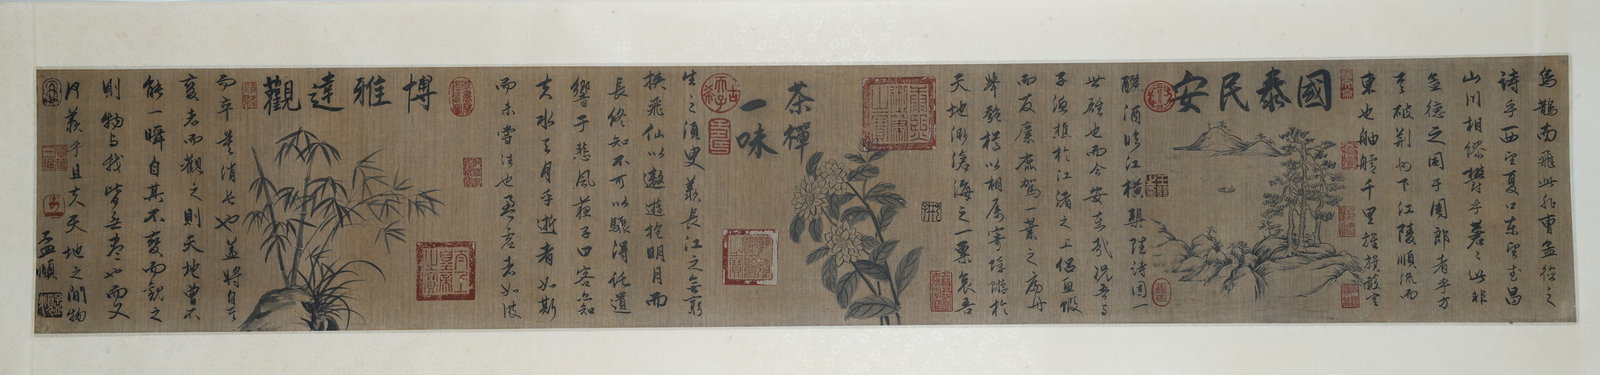 烏鵲南飛此非曹孟德之
詩乎西望夏口東望武昌
山川相繆鬱乎蒼〻此非
孟德之困于周郎者乎方
其破荊州下江陵順流而
東也舳艫千里旌旗蔽空
國泰民安
釃酒臨江橫槊賦詩固一
世雄也而今安在哉況吾與
子漁樵於江渚之上侶魚蝦
而友麋鹿駕一葉之扁舟
舉匏樽以相屬寄蜉蝣於
天地渺滄海之一粟哀吾
茶禪
一味
生之須臾羨長江之無窮
挾飛仙以遨遊抱明月而
長終知不可以驟得託遺
響于悲風蘇子曰客亦知
夫水與月乎逝者如斯
而未嘗往也盈虛者如彼
博雅達觀
而卒莫消長也蓋將自其
變者而觀之則天地曾不
能一瞬自其不變而觀之
則物與我皆無盡也而又
何羨乎且夫天地之間物
孟頫